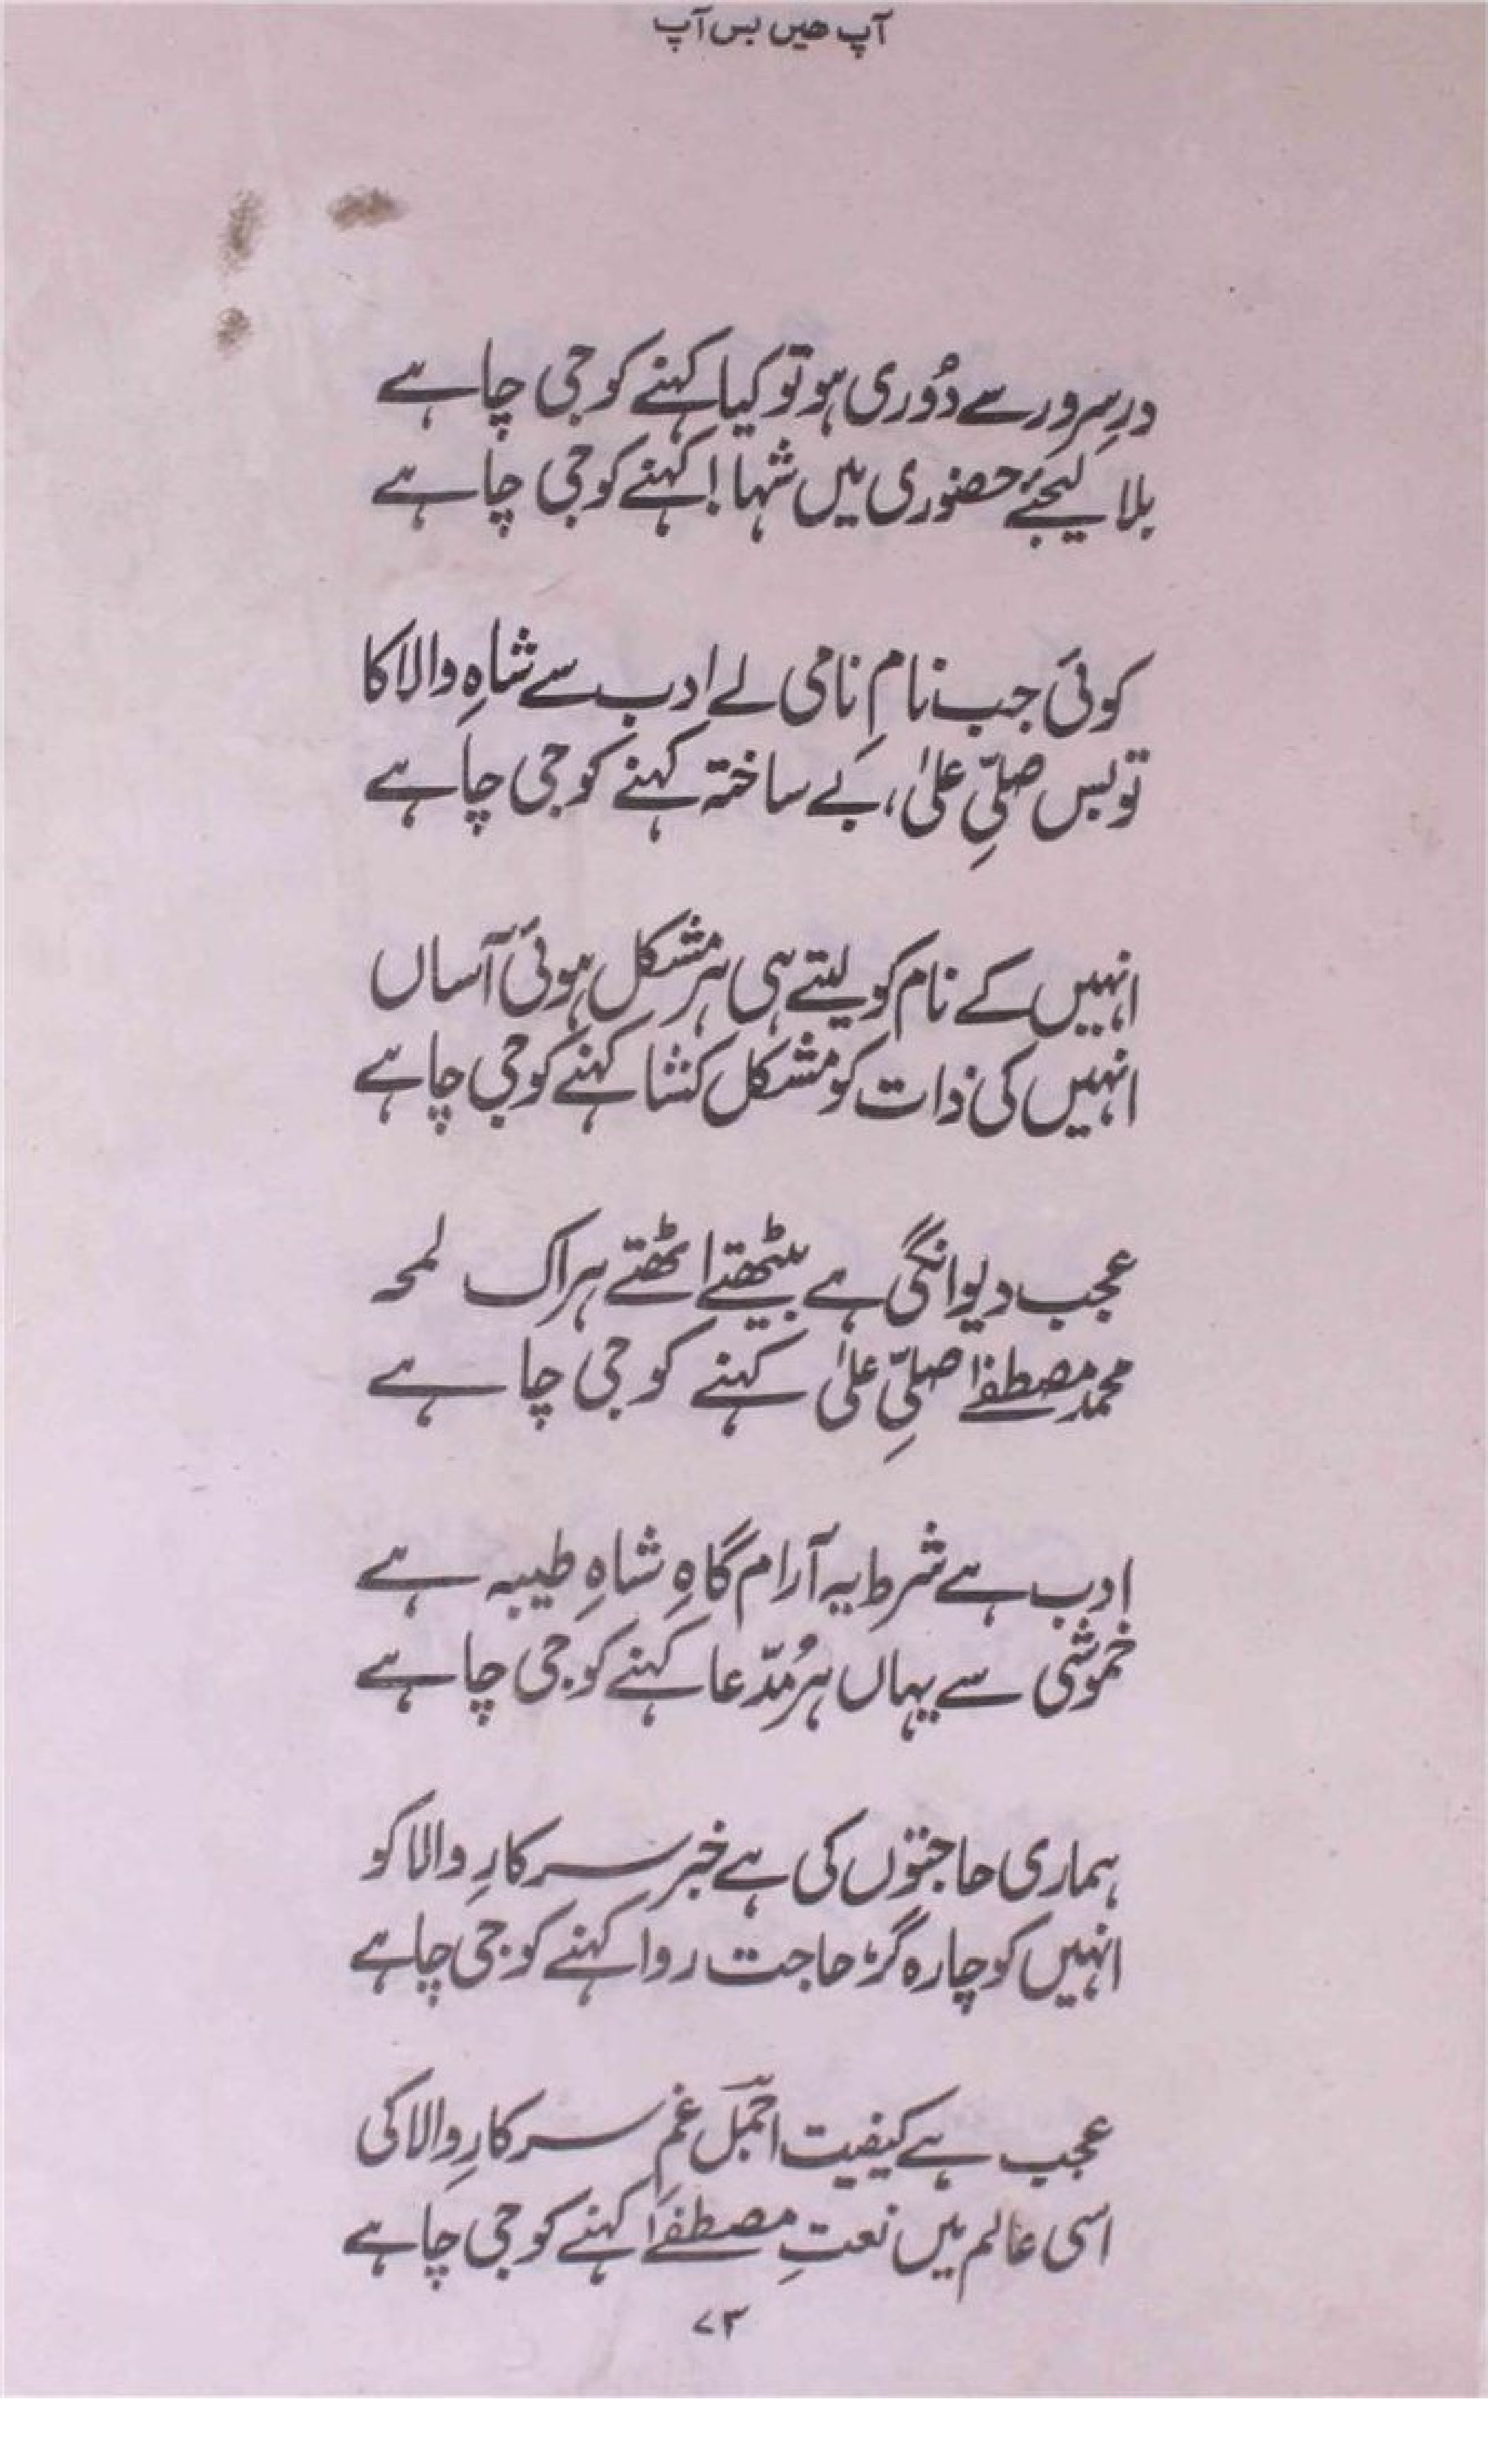 آپ ھیں بس آپ
درِ سرور سے دُوری ہو تو کیا کہنے کو جی چاہے
بلا لیجئے حضوری میں شہا! کہنے کو جی چاہے
کوئی جب نامِ نامی لے ادب سے شاہِ والا کا
تو بس صلِّی علیٰ، بے ساختہ کہنے کو جی چاہے
انہیں کے نام کو لیتے ہی ہر مشکل ہوئی آساں
انہیں کی ذات کو مشکل کشا کہنے کو جی چاہے
عجب دیوانگی ہے بیٹھتے اٹھتے ہر اک لمحہ
محمد مصطفےٰ صلِّی علیٰ کہنے کو جی چاہے
ادب ہے شرط یہ آرام گاہِ شاہِ طیبہ ہے
خموشی سے یہاں ہر مُدّعا کہنے کو جی چاہے
ہماری حاجتوں کی ہے خبر سرکارِ والا کو
انہیں کو چارہ گر، حاجت روا کہنے کو جی چاہے
عجب ہے کیفیت اجمل غمِ سرکارِ والا کی
اسی عالم میں نعتِ مصطفےٰ کہنے کو جی چاہے
۷۳